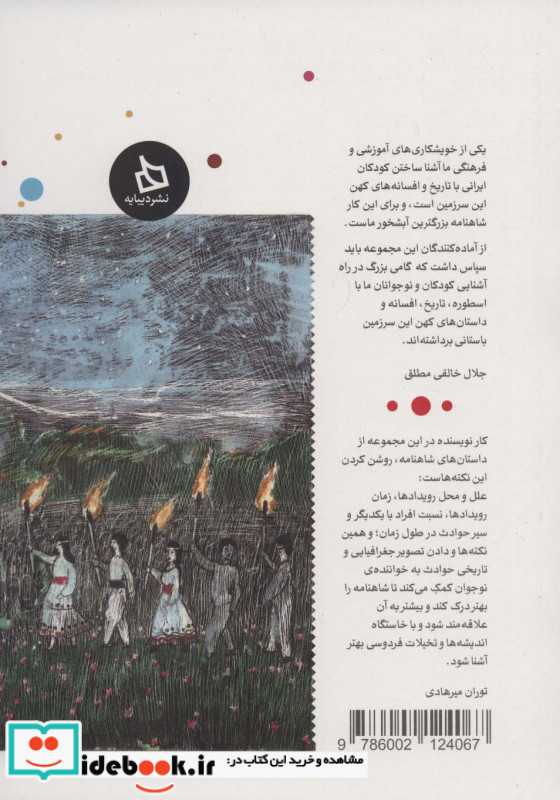 نشر دیبایه
یکی از خویشکاری‌های آموزشی و
فرهنگی ما آشنا ساختن کودکان
ایرانی با تاریخ و افسانه‌های کهن
این سرزمین است، و برای این کار
شاهنامه بزرگترین آبشخور ماست.
از آماده‌کنندگان این مجموعه باید
سپاس داشت که گامی بزرگ در راه
آشنایی کودکان و نوجوانان ما با
اسطوره، تاریخ، افسانه و
داستان‌های کهن این سرزمین
باستانی برداشته‌اند.
جلال خالقی مطلق
کار نویسنده در این مجموعه از
داستان‌های شاهنامه، روشن کردن
این نکته‌هاست:
علل و محل رویدادها، زمان
رویدادها، نسبت افراد با یکدیگر و
سیر حوادث در طول زمان؛ و همین
نکته‌ها و دادن تصویر جغرافیایی و
تاریخی حوادث به خواننده‌ی
نوجوان کمک می‌کند تا شاهنامه را
بهتر درک کند و بیشتر به آن
علاقه‌مند شود و با خاستگاه
اندیشه‌ها و تخیلات فردوسی بهتر
آشنا شود.
توران میرهادی
9 786002 124067
مشاهده و خرید این کتاب در:
idebook.ir